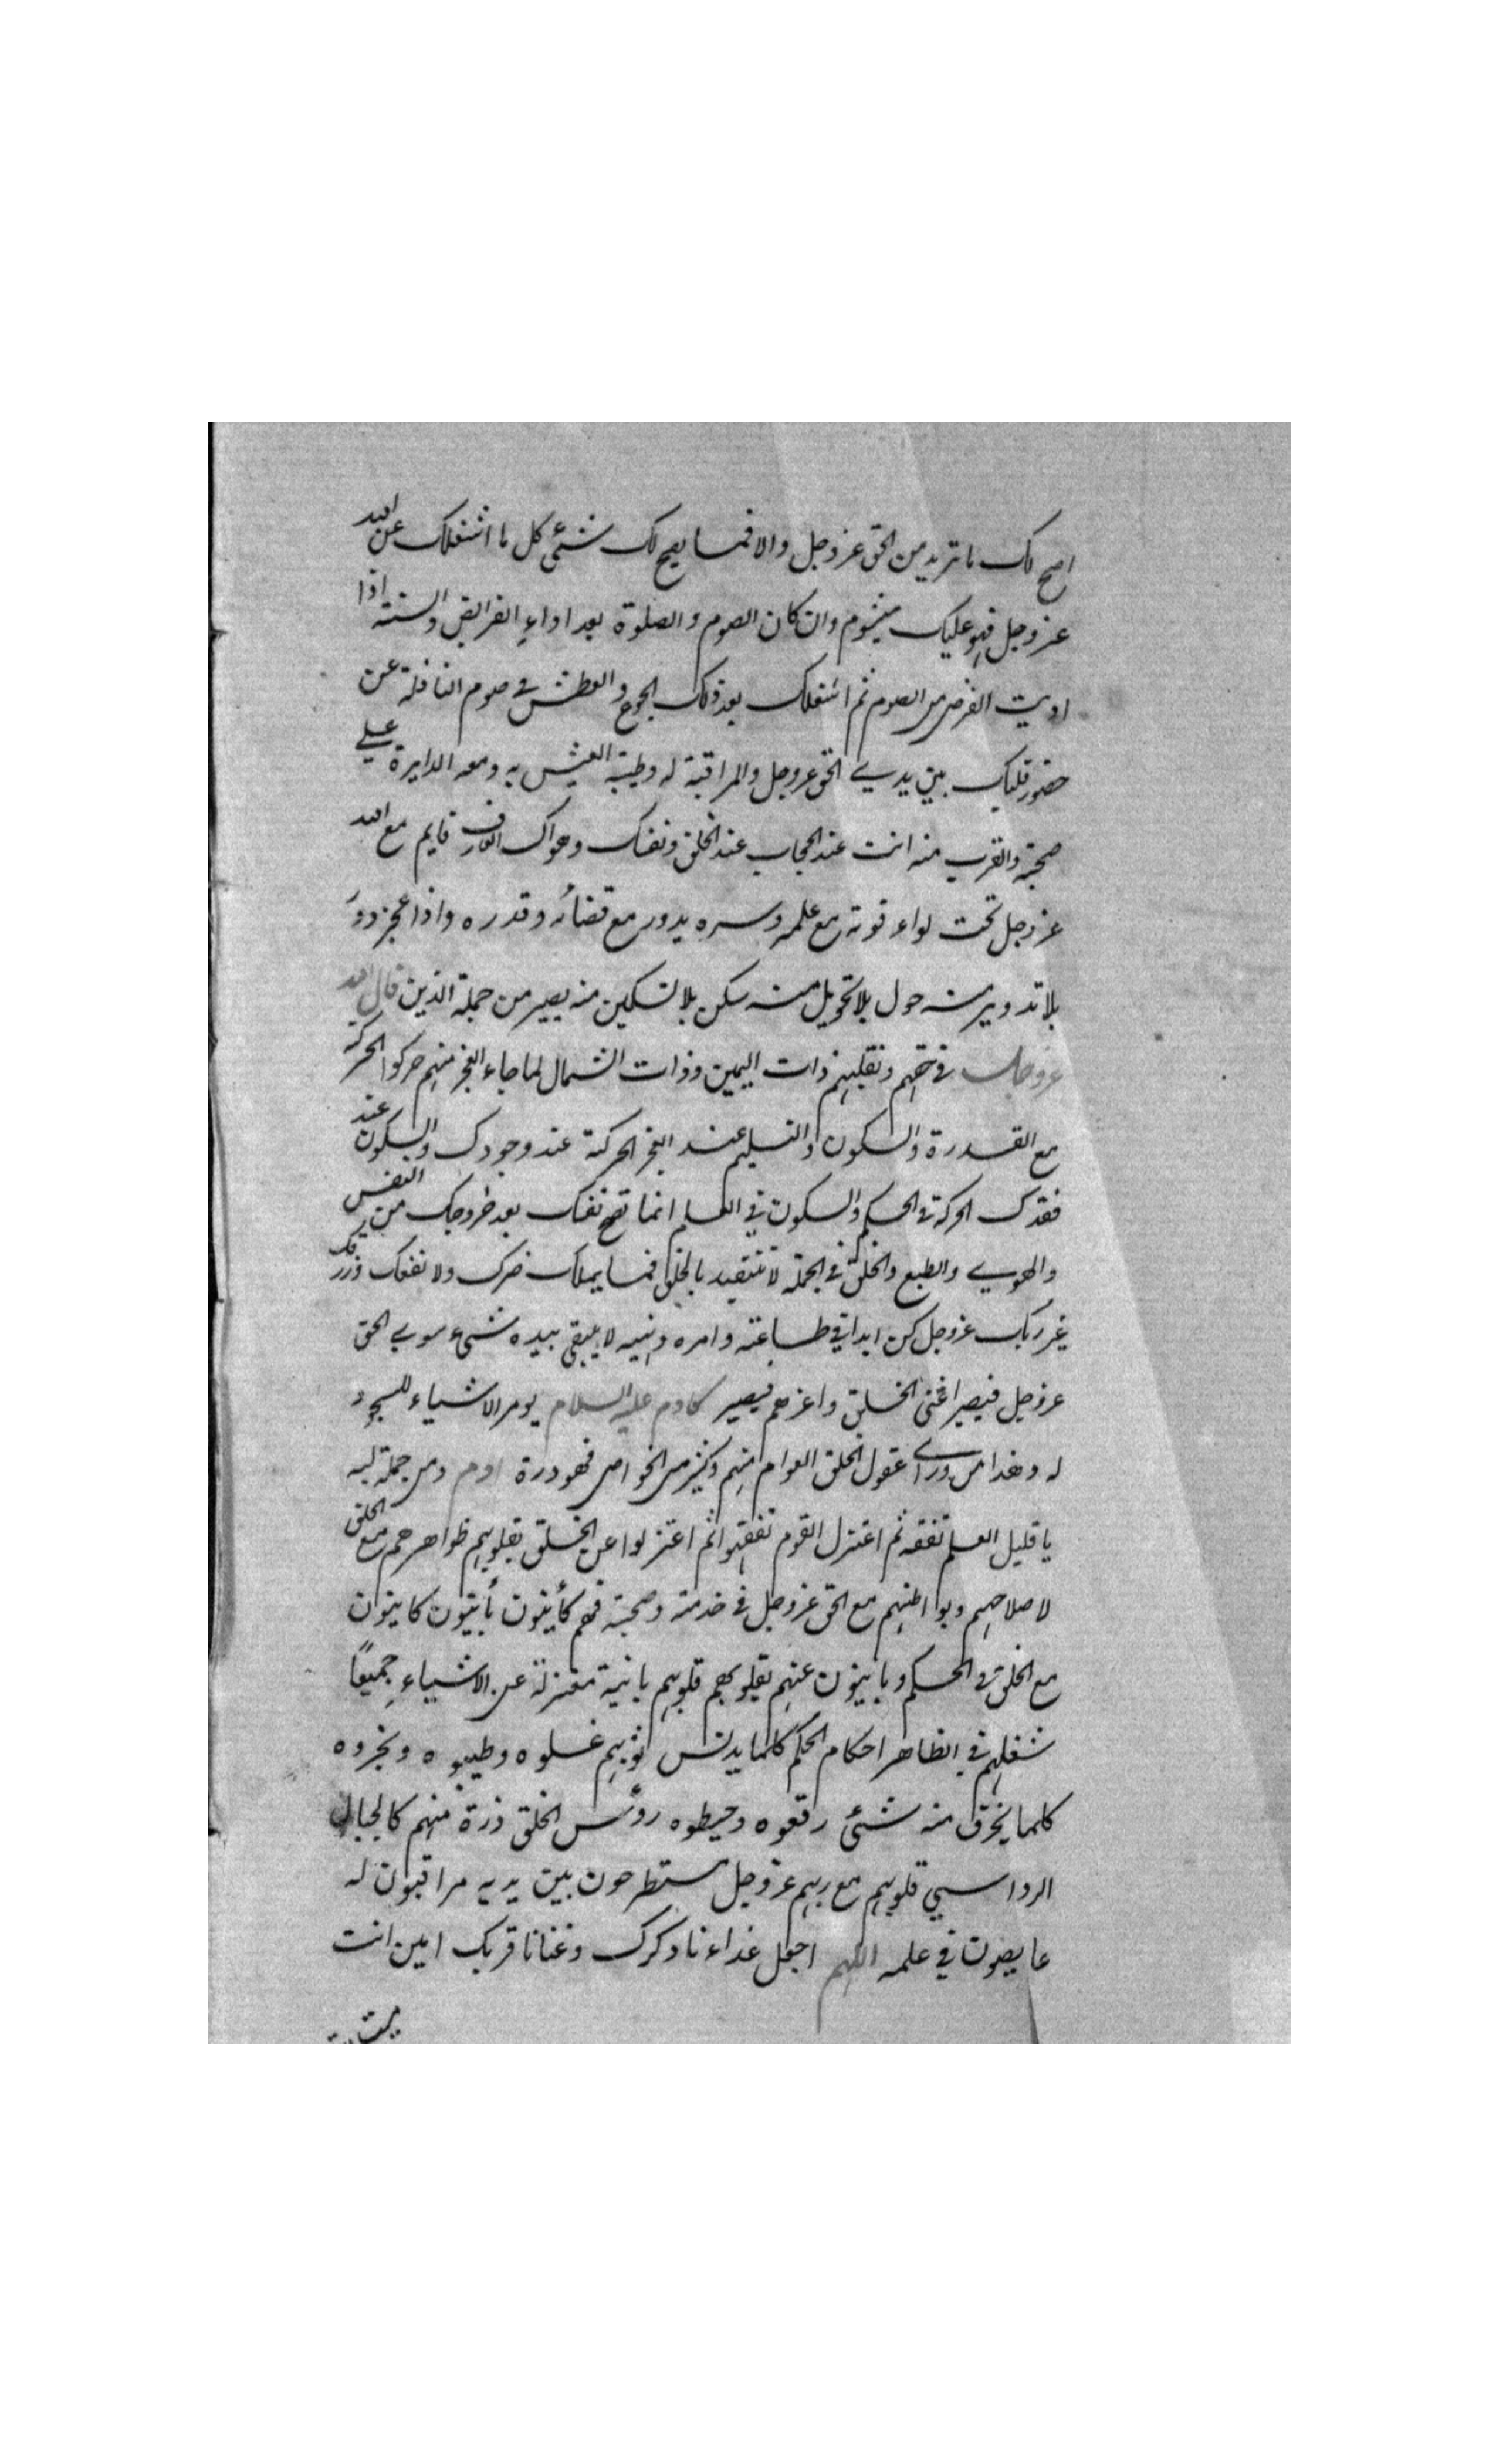 اصح لك ما تريد من الحق عز وجل والا فما يصح لك شئ كل ما اشغلك عن الله
عز وجل فهو عليك ميشوم وان كان الصوم والصلوة بعد اداء الفرايض والسنة اذا
اديت الفرض من الصوم ثم اشغلك بعد ذلك الجوع والعطش في صوم النافلة عن
حضور قلبك بين يدي الحق عز وجل والمراقبة له وطيبة العيش به ومعه الدايرة علي
صحبته والقرب منه انت عند الحجاب عند الخلق ونفسك وهواك العارف قايم مع الله
عز وجل تحت لواء قوته مع علمه وسره يدور مع قضائه وقدره واذا عجز دور
بلا تدوير منه حول بلا تحويل منه سكن بلا تسكين منه يصير من جملة الذين قال الله
عز وجل في حقهم ونقلبهم ذات اليمين وذات الشمال لما جاء العجز منهم حركوا الحركة
مع القدرة والسكون والتسليم عند العجز الحركة عند وجودك والسكون عند
فقدك الحركة في الحكم والسكون في العلم انما تصح نفسك بعد خروجك من النفس
والهوي والطبع والخلق في الجملة لا تتقيد بالخلق فما يملك ضرك ولا نفعك ورزقك
غير ربك عز وجل كن ابدا في طاعته وامره ونهيه لا يبقي بيده شيء سوي الحق
عز وجل فيصير اغنى الخلق واعزهم فيصير كادم عليه السلام يومر الاشياء للسجود
له وهذا من وراء عقول الخلق العوام منهم وكثير من الخواص فهو درة ادم ومن جملة لبه
يا قليل العلم تفقه ثم اعتزل القوم تفقهوا ثم اعتزلوا عن الخلق بقلوبهم ظواهرهم مع الخلق
لاصلاحهم وبواطنهم مع الحق عز وجل في خدمته وصحبته فهم كأينون بأينون كاينون
مع الخلق في الحكم وباينون عنهم بقلوبهم قلوبهم باينة معتزلة عن الاشياء جميعًا
شغلهم في الظاهر احكام الحكم كلما يدنس ثوبهم غسلوه وطيبوه وبخروه
كلما يخرق منه شئ رقعوه وخيطوه رؤس الخلق ذرة منهم كالجبال
الرواسي قلوبهم مع ربهم عز وجل مستطرحون بين يديه مراقبون له
غايصون في علمه اللهم اجعل غداءنا ذكرك وغنانا قربك امين انت
ميت